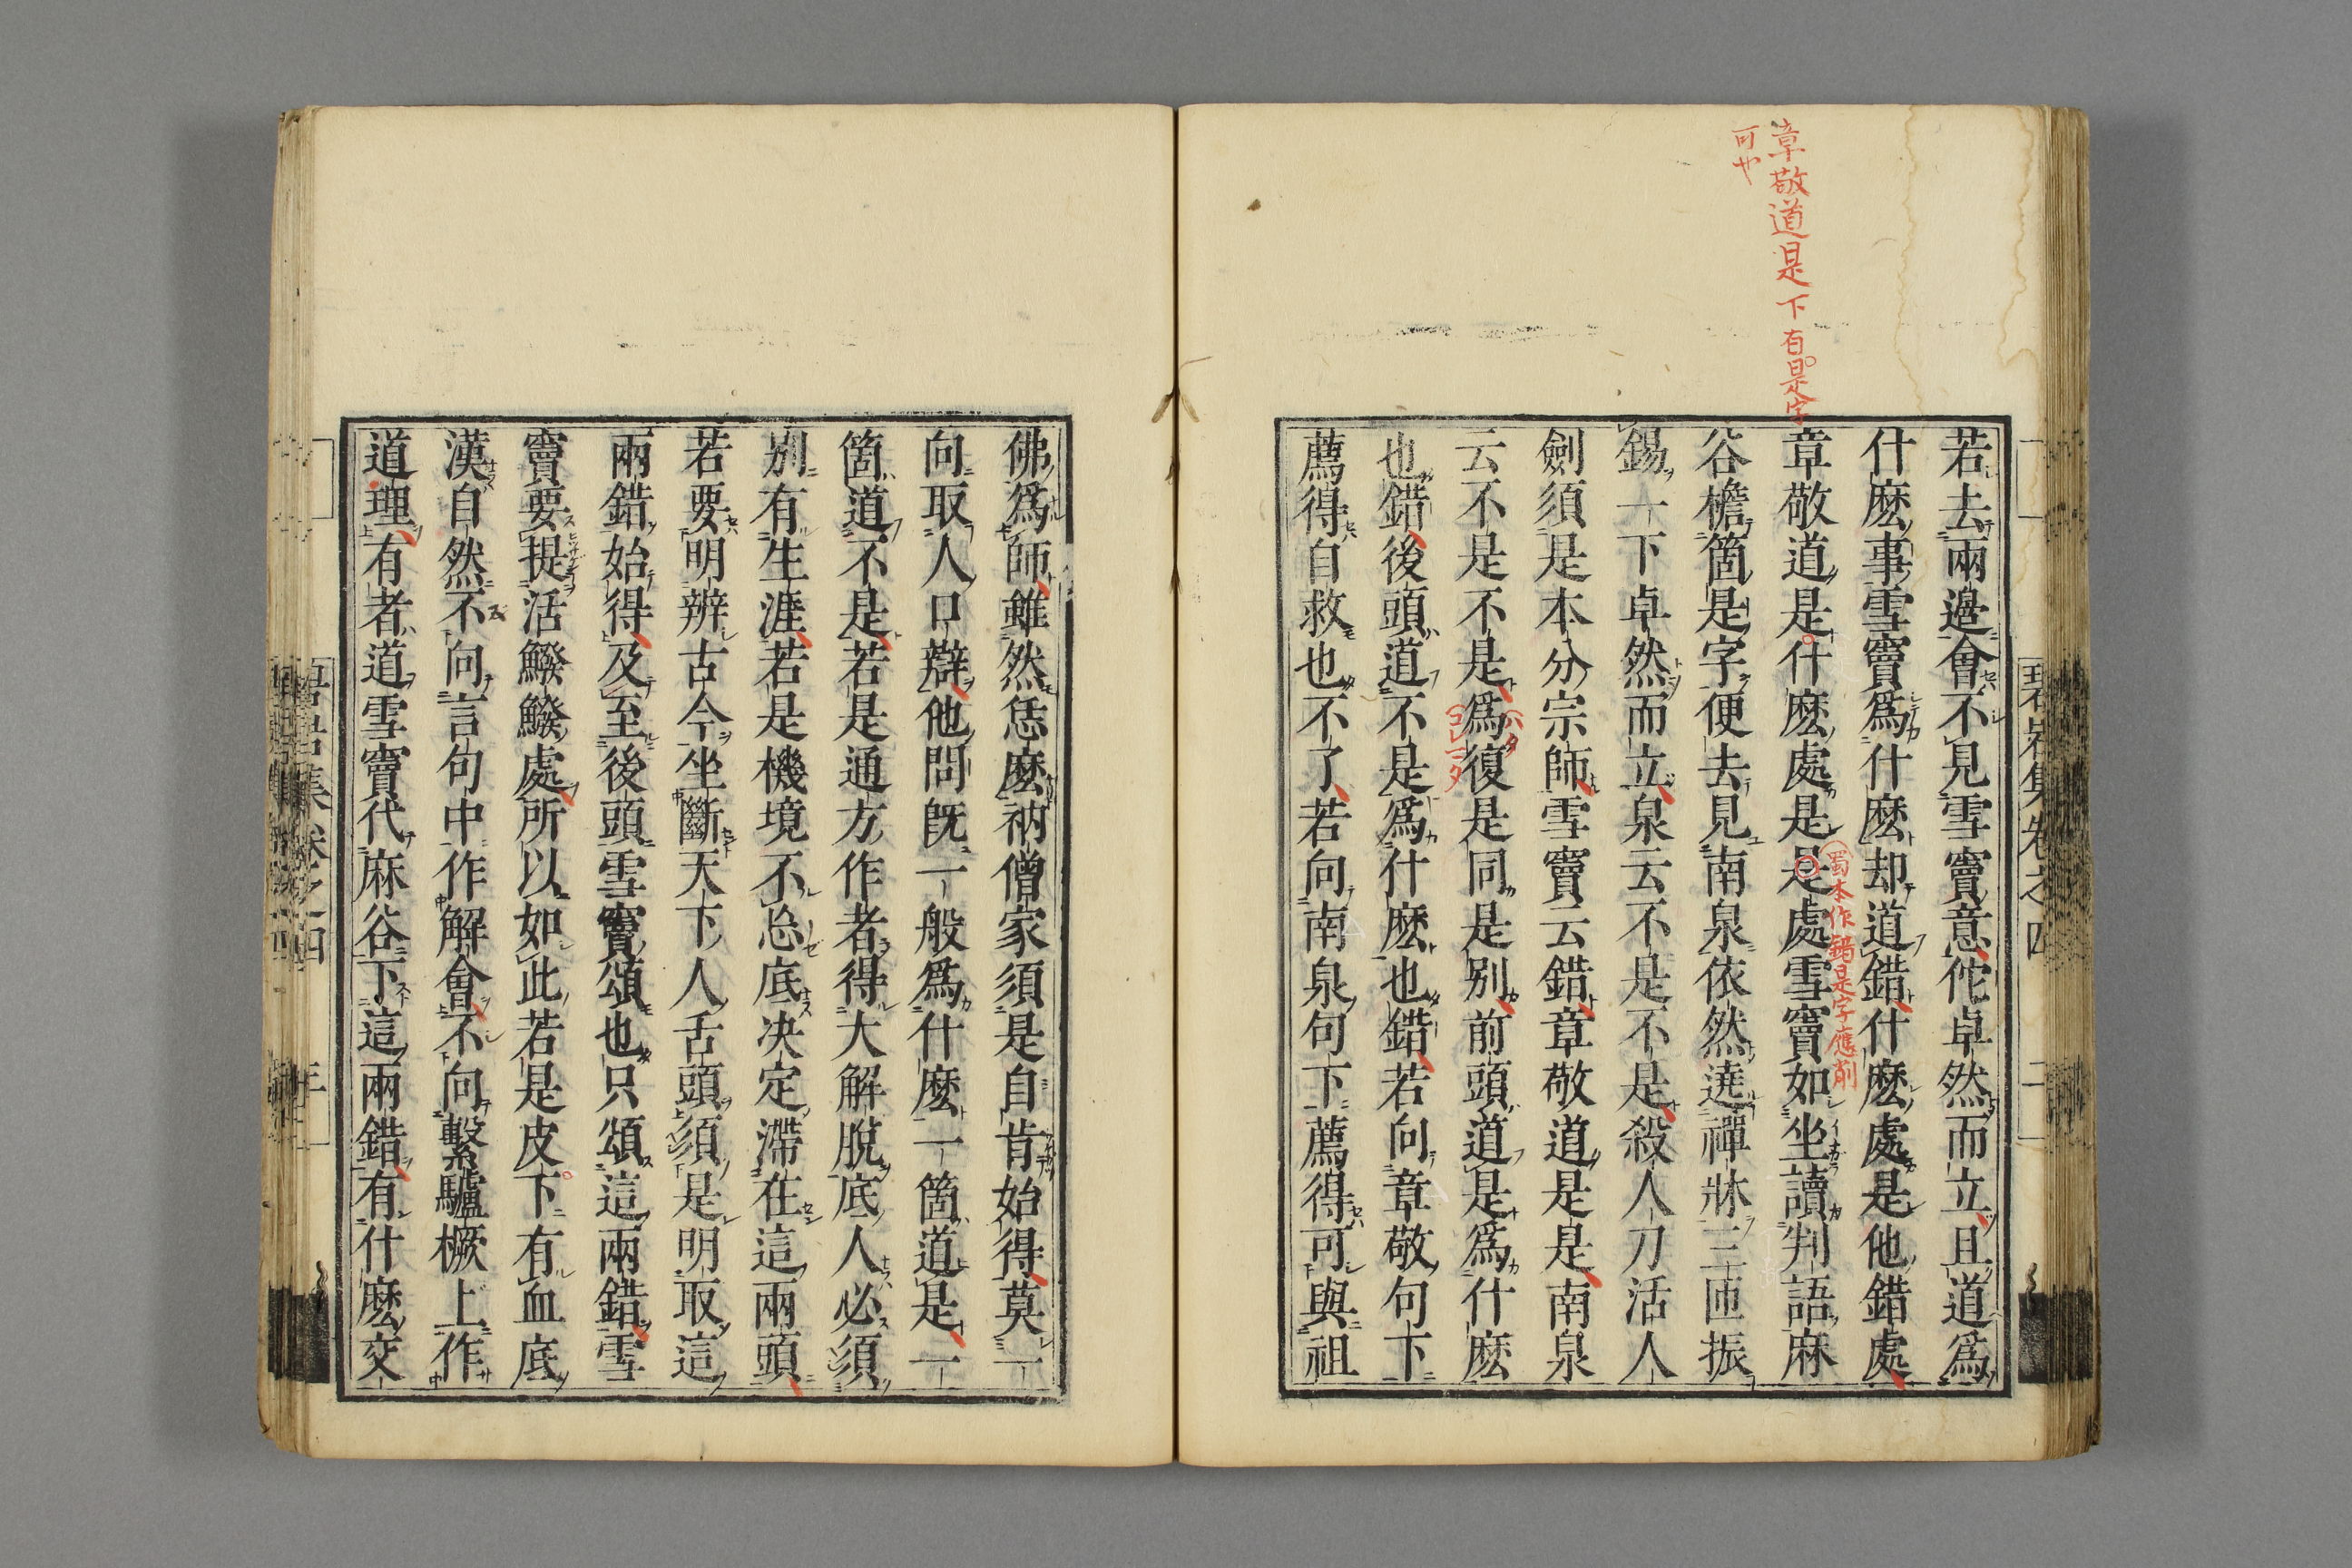 章敬道是下有是字
可也
若去兩邊會不見雪竇意佗卓然而立且道爲
什麽事雪竇爲什麽却道錯什麽處是他錯處
蜀本作錯是字應削
章敬道是什麽處是是處雪竇如坐讀判語麻
谷檐箇是字便去見南泉依然遶禪牀三匝振
錫一下卓然而立泉云不是不是殺人刀活人
劍須是本分宗師雪竇云錯章敬道是是南泉
云不是不是爲復是同是别前頭道是爲什麽
也錯後頭道不是爲什麽也錯若向章敬句下
薦得自救也不了若向南泉句下薦得可與祖
碧岩集卷之四 二
佛爲師雖然恁麽衲僧家須是自肯始得莫一
向取人口辯他問旣一般爲什麽一箇道是一
箇道不是若是通方作者得大解脫底人必須
别有生涯若是機境不忘底决定滯在這兩頭
若要明辨古今坐斷天下人舌頭須是明取這
兩錯始得及至後頭雪竇頌也只頌這兩錯雪
竇要提活鱍鱍處所以如此若是皮下有血底
漢自然不向言句中作解會不向繫驢橛上作
道理有者道雪竇代麻谷下這兩錯有什麽交